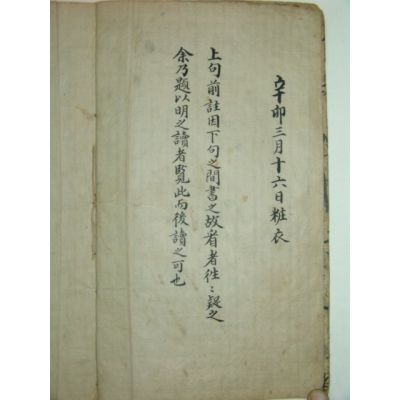 辛卯三月十六日粧衣
上句前註因下句之間書之故看者徃〻疑之
余乃題以明之讀者覧此而後讀之可也